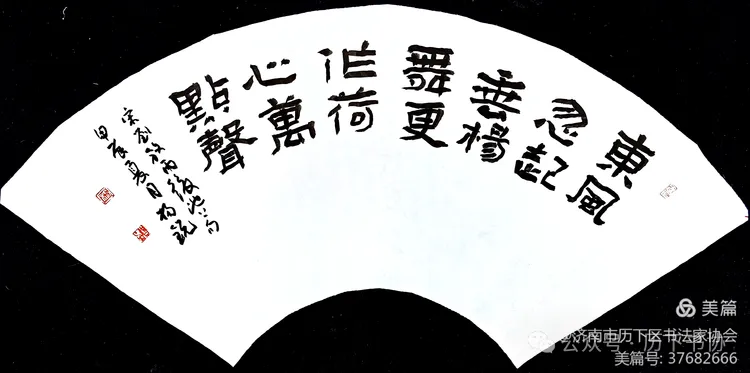 東風
忽起
垂楊
舞更
作荷
心萬
點聲
宋刘攽雨後池上句
甲辰夏月
美篇
济南市历下区书法家协会
公众号 · 历下书协
美篇号: 37682666